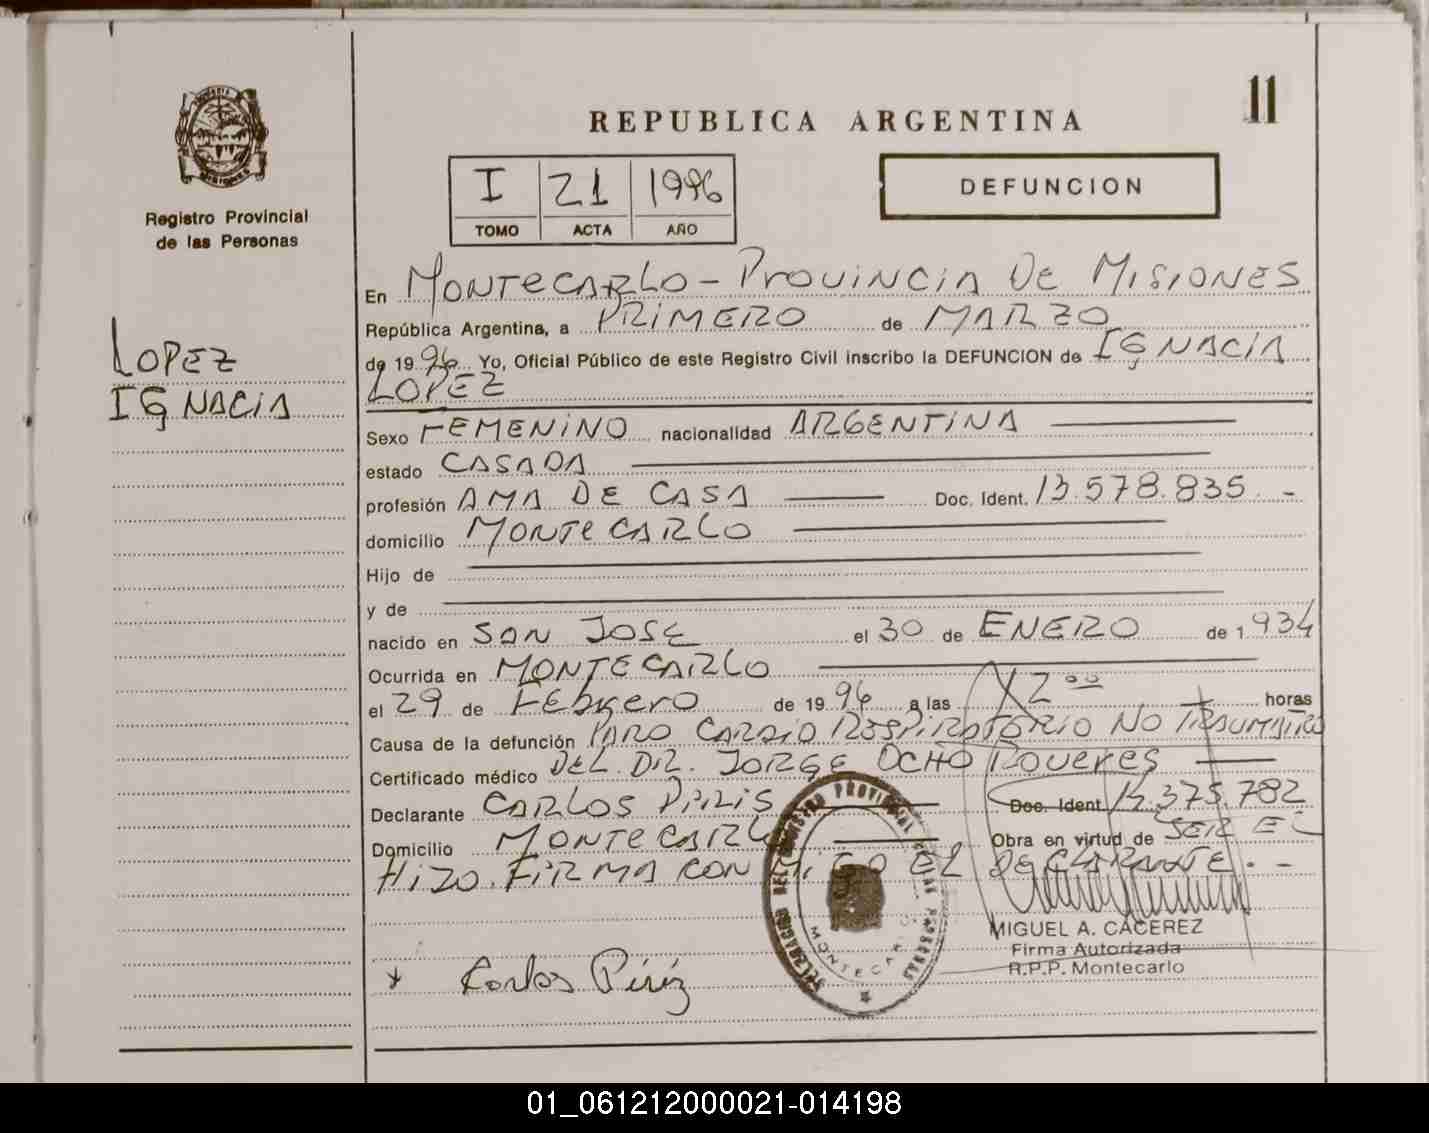 11
REPUBLICA ARGENTINA
I 21 1996
TOMO ACTA AÑO
DEFUNCION
Registro Provincial
de las Personas
LOPEZ
IGNACIA
En MONTECARLO - PROVINCIA DE MISIONES
República Argentina, a PRIMERO de MARZO
de 1996 Yo, Oficial Público de este Registro Civil inscribo la DEFUNCION de IGNACIA
LOPEZ
Sexo FEMENINO nacionalidad ARGENTINA
estado CASADA
profesión AMA DE CASA Doc. Ident. 13.578.835 -
domicilio MONTECARLO
Hijo de
y de
nacido en SAN JOSE el 30 de ENERO de 1934
Ocurrida en MONTECARLO
el 29 de FEbrero de 1996 a las horas
Causa de la defunción PARO CARDIO RESPIRATORIO NO TRAUMATICO
Certificado médico DEL DR. JORGE OCHO
Declarante CARLOS Doc. Ident. .375.782
Domicilio MONTECARLO Obra en virtud de SER EL
HIZO. FIRMA CONMIGO EL DECLARANTE. -
MONTECARLO
MIGUEL A. CACEREZ
Firma Autorizada
R.P.P. Montecarlo
01_061212000021-014198